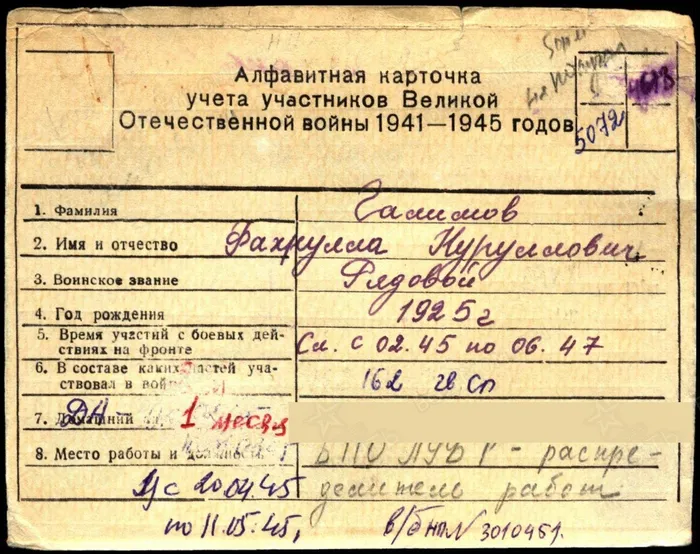 Алфавитная карточка
учета участников Великой
Отечественной войны 1941—1945 годов
5072
1. Фамилия Галимов
2. Имя и отчество Фахрулла Нуруллович
3. Воинское звание Рядовой
4. Год рождения 1925 г
5. Время участий с боевых дей-
ствиях на фронте Сл. с 02.45 по 06.47
6. В составе каких частей уча-
ствовал в войне 162 гв сп
7. Домашний
ДА — 1 месяц
8. Место работы и должность — распре-
делитель работ
Ус 20.04.45
по 11.05.45, в/бил N 3010451.